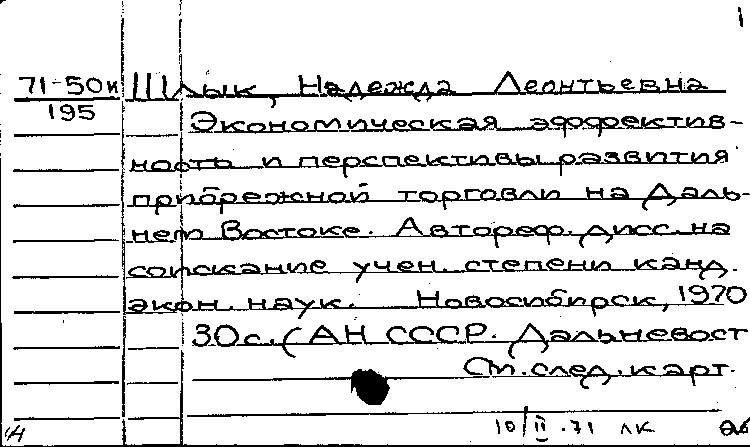 1
71-50и Шлык, Надежда Леонтьевна
195
Экономическая эффектив-
ность и перспективы развития
прибрежной торговли на Даль-
нем Востоке. Автореф. дисс. на
соискание учен. степени канд.
экон. наук. Новосибирск, 1970
30с. (АН СССР. Дальневост
См. след. карт.
10/II-71 лк